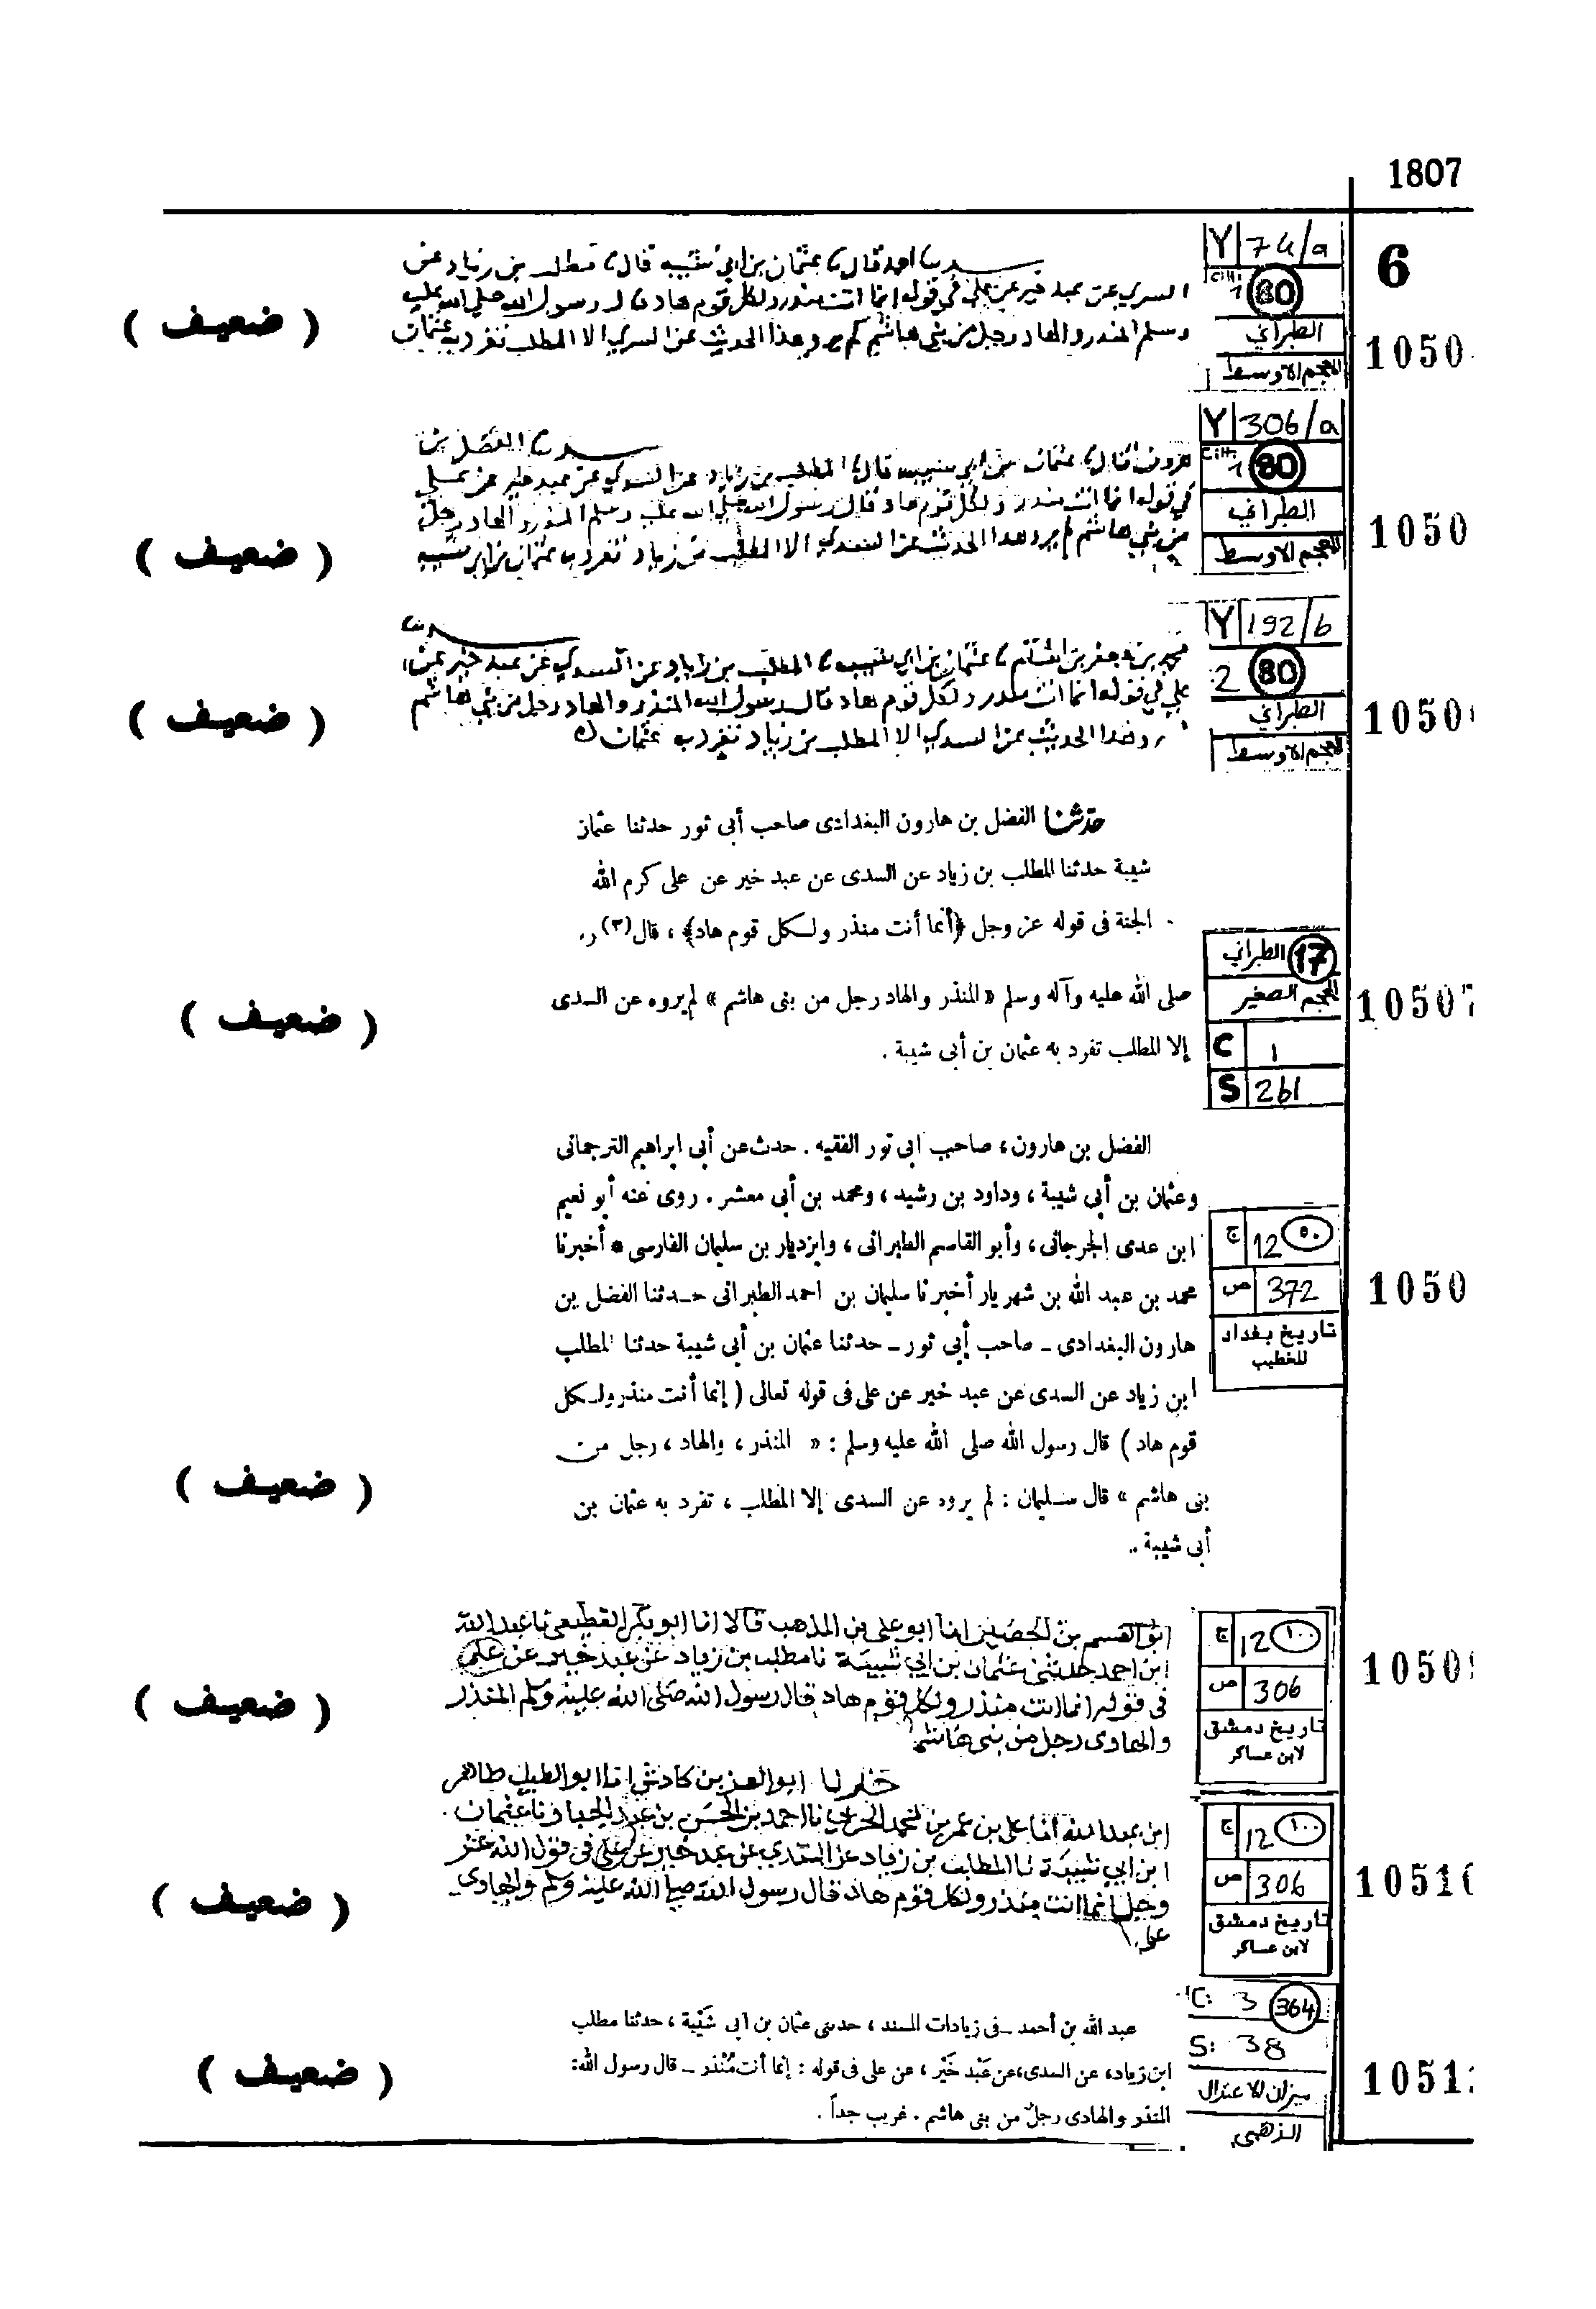 1807
6
Y 74/a
Cilt: 1 80
الطبراني
المعجم الاوسط
1050
حدثنا احمد قال نا عثمان بن ابي شيبه قال نا مطلب بن زياد عن
السري عن عبد خير عن علي في قوله انما انت منذر ولكل قوم هاد قال رسول الله صلي الله عليه
وسلم المنذر والهاد رجل من بني هاشم لم يرو هذا الحديث عن السري الا المطلب تفرد به عثمان
( ضعيف )
Y 306/a
Cilt: 1 80
الطبراني
المعجم الاوسط
1050
حدثنا الفضل بن
هرون قال نا عثمان بن ابي شيبه قال نا المطلب بن زياد عن السدي عن عبد خير عن علي
في قوله انما انت منذر ولكل قوم هاد قال رسول الله صلي الله عليه وسلم المنذر والهاد رجل
من بني هاشم لم يرو هذا الحديث عن السدي الا المطلب بن زياد تفرد به عثمان بن ابي شيبه
( ضعيف )
Y 192/b
2 80
الطبراني
المعجم الاوسط
1050
حدثنا
عثمان بن ابي شيبه نا المطلب بن زياد عن السدي عن عبد خير عن
علي في قوله انما انت منذر ولكل قوم هاد قال رسول الله المنذر والهاد رجل من بني هاشم
هذا الحديث عن السدي الا المطلب بن زياد تفرد به عثمان
( ضعيف )
حدثنا الفضل بن هارون البغدادى صاحب أبى ثور حدثنا عثمان
شيبة حدثنا المطلب بن زياد عن السدى عن عبد خير عن على كرم الله
الجنة فى قوله عز وجل ﴿أنما أنت منذر ولكل قوم هاد﴾ ، قال(٣) ر
صلى الله عليه وآله وسلم « المنذر والهاد رجل من بنى هاشم » لم يروه عن السدى
إلا المطلب تفرد به عثمان بن أبى شيبة .
الطبراني 17
المعجم الصغير
C 1
S 261
10507
( ضعيف )
الفضل بن هارون ، صاحب ابى ثور الفقيه . حدث عن أبى ابراهيم الترجمانى
وعثمان بن أبى شيبة ، وداود بن رشيد ، ومحمد بن أبى معشر . روى عنه أبو نعيم
ابن عدى الجرجانى ، وأبو القاسم الطبرانى ، وايزديار بن سليمان الفارسى * أخبرنا
محمد بن عبد الله بن شهريار أخبرنا سليمان بن احمد الطبرانى حدثنا الفضل بن
هارون البغدادى ـ صاحب أبى ثور ـ حدثنا عثمان بن أبى شيبة حدثنا المطلب
ابن زياد عن السدى عن عبد خير عن على فى قوله تعالى ( إنما أنت منذر ولكل
قوم هاد ) قال رسول الله صلى الله عليه وسلم : « المنذر ، والهاد ، رجل من
بنى هاشم » قال سليمان : لم يروه عن السدى إلا المطلب ، تفرد به عثمان بن
أبى شيبة ..
ج 12 ٥٠
ص 372
تاريخ بغداد
للخطيب
1050
( ضعيف )
ابو القسم بن الحصين انا ابو علي بن المذهب قالا انا ابو بكر القطيعي نا عبد الله
ابن احمد حدثني عثمان بن ابي شيبة نا مطلب بن زياد عن عبد خير عن علي
في قوله انما انت منذر ولكل قوم هاد قال رسول الله صلى الله عليه وسلم المنذر
والهادى رجل من بني هاشم
ج 12 ١٠٠
ص 306
تاريخ دمشق
لابن عساكر
1050
( ضعيف )
ابو العز بن كادش انا ابو الطيب طاهر
ابن عبد الله انا علي بن عمر بن محمد الحربي نا احمد بن الحسن بن عبد الجبار نا عثمان
ابن ابي شيبة نا المطلب بن زياد عن السدي عن عبد خير عن علي في قول الله عز
وجل انما انت منذر ولكل قوم هاد قال رسول الله صلى الله عليه وسلم والهادى
علي
ج 12 ١٠٠
ص 306
تاريخ دمشق
لابن عساكر
10510
( ضعيف )
عبد الله بن أحمد ـ فى زيادات المسند ، حدثنى عثمان بن أبى شَيْبة ، حدثنا مطلب
ابن زياد، عن السدى، عن عَبْد خَيْر ، عن على فى قوله : إنما أنت مُنْذر ـ قال رسول الله:
المنذر والهادى رجلٌ من بنى هاشم . غريب جداً .
C: 3 364
S: 38
ميزان الاعتدال
الذهبي
1051
( ضعيف )